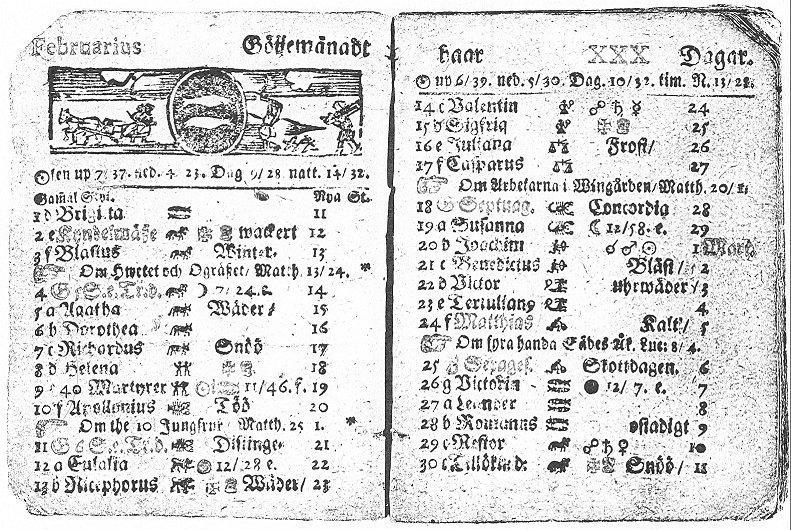 Februarius Götjemånadt
Solen up 7/37. ned. 4 23. Dag 9/28 natt. 14/32.
Gamal Styl. Nya St.
1 d Brigitta 11
2 e Kyndelmässe wackert 12
3 f Blasius Winter. 13
Om Hwetet och Ogräset/ Matth. 13/24. *
4 G 5 S. e. Tr. d. ☽ 7/24. 14
5 a Agatha Wäder/ 15
6 b Dorothea 16
7 c Richardus Snöö 17
8 d Helena 18
9 e 40 Martyrer 11/46. f. 19
10 f Apollonius Töö 20
Om the 10 Jungfrur Matth. 25 1. *
11 G 6 S. e. Tr. d. Distinge 21
12 a Eulalia 12/28 e. 22
13 b Nicephorus Wäder/ 23
haar XXX Dagar.
☉ up 6/39. ned. 5/30. Dag. 10/32. tim. N. 13/28.
14 c Valentin ☍ ♄ ☿ 24
15 d Sigfrid 25
16 e Juliana Frost/ 26
17 f Casparus 27
Om Arbetarna i Wingården/ Matth. 20/1.
18 G Septuag. Concordia 28
19 a Susanna ☾ 12/58. e. 29
20 b Joachim ☌ ♂ ☉ 1 Mart.
21 c Benedictus Bläst/ 2
22 d Victor uhrwäder/ 3
23 e Tertulian9 4
24 f Matthias Kalt/ 5
Om fyra handa Sädes Åk. Luc: 8/4.
25 G Sexages. Skottdagen. 6
26 g Victorin ● 12/7. e. 7
27 a Leander 8
28 b Romanus ostadigt 9
29 c Nestor ☍ ♄ ♀ 10
30 c Snöö/ 11